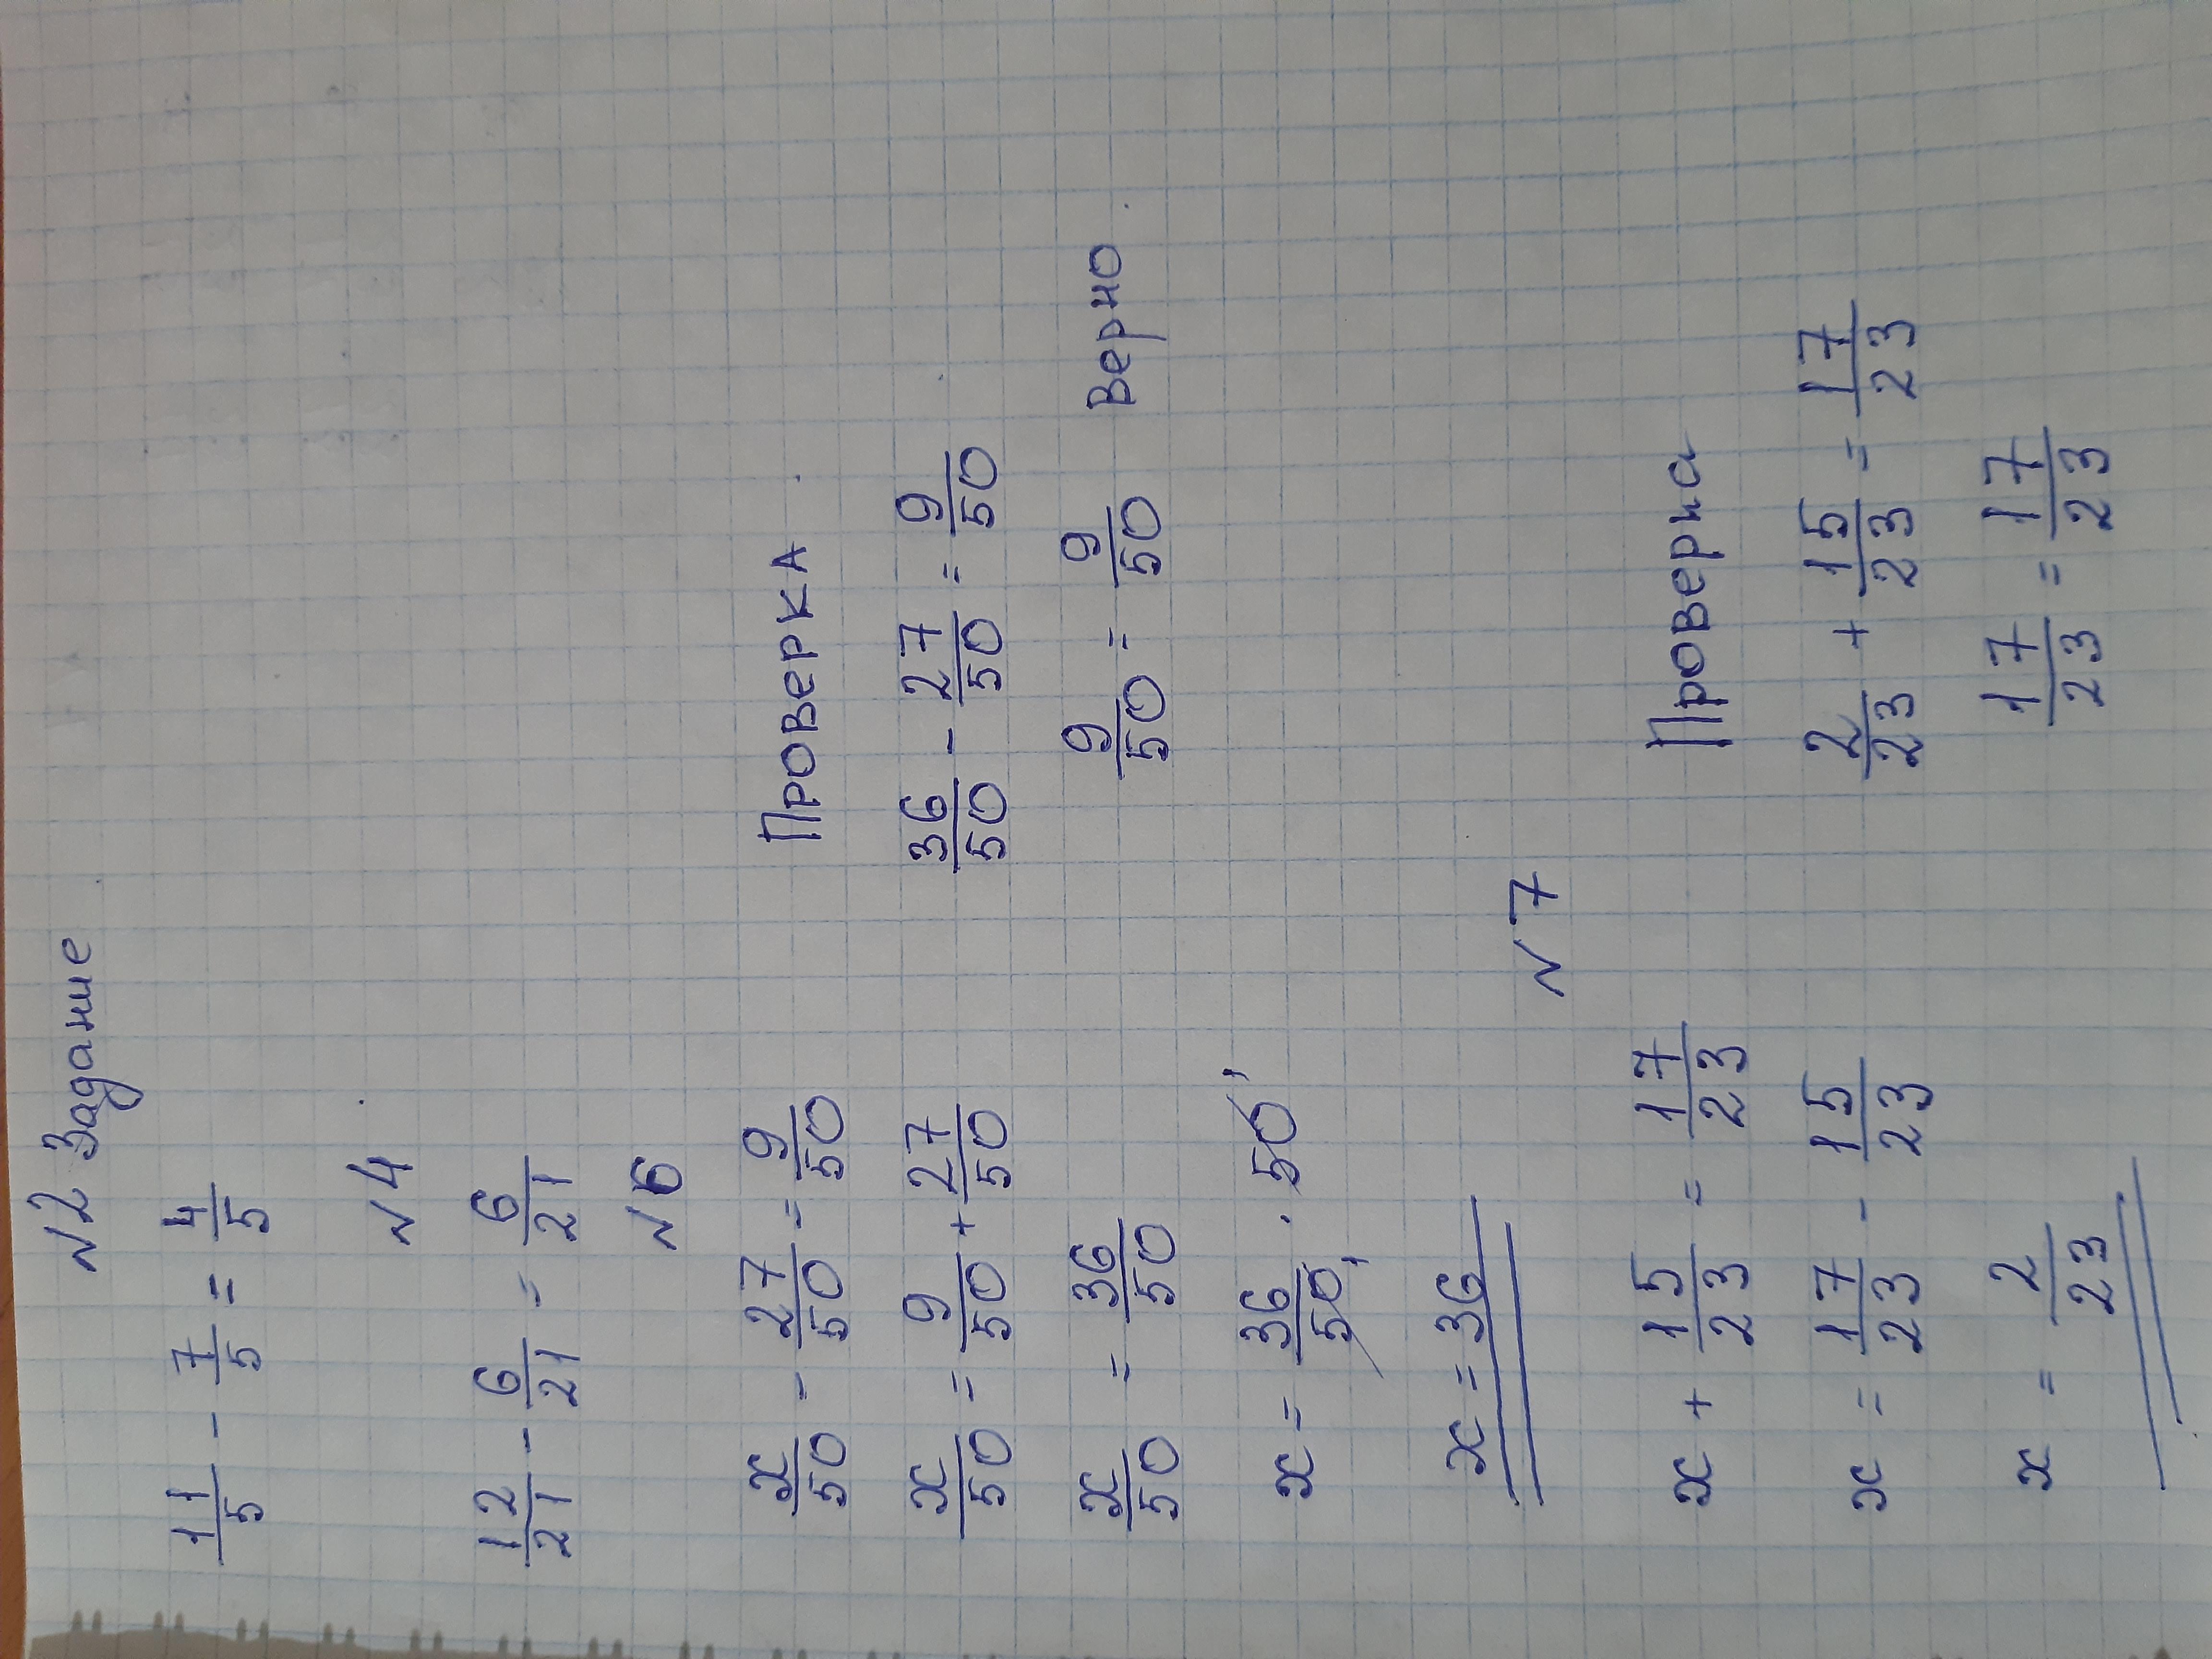 N2 Задание
11/5 - 7/5 = 4/5
N4
12/21 - 6/21 = 6/21
N6
x/50 - 27/50 = 9/50
x/50 = 9/50 + 27/50
x/50 = 36/50
x = 36/50 · 50
x = 36
Проверка
36/50 - 27/50 = 9/50
9/50 = 9/50 Верно
N7
x + 15/23 = 17/23
x = 17/23 - 15/23
x = 2/23
Проверка
2/23 + 15/23 = 17/23
17/23 = 17/23